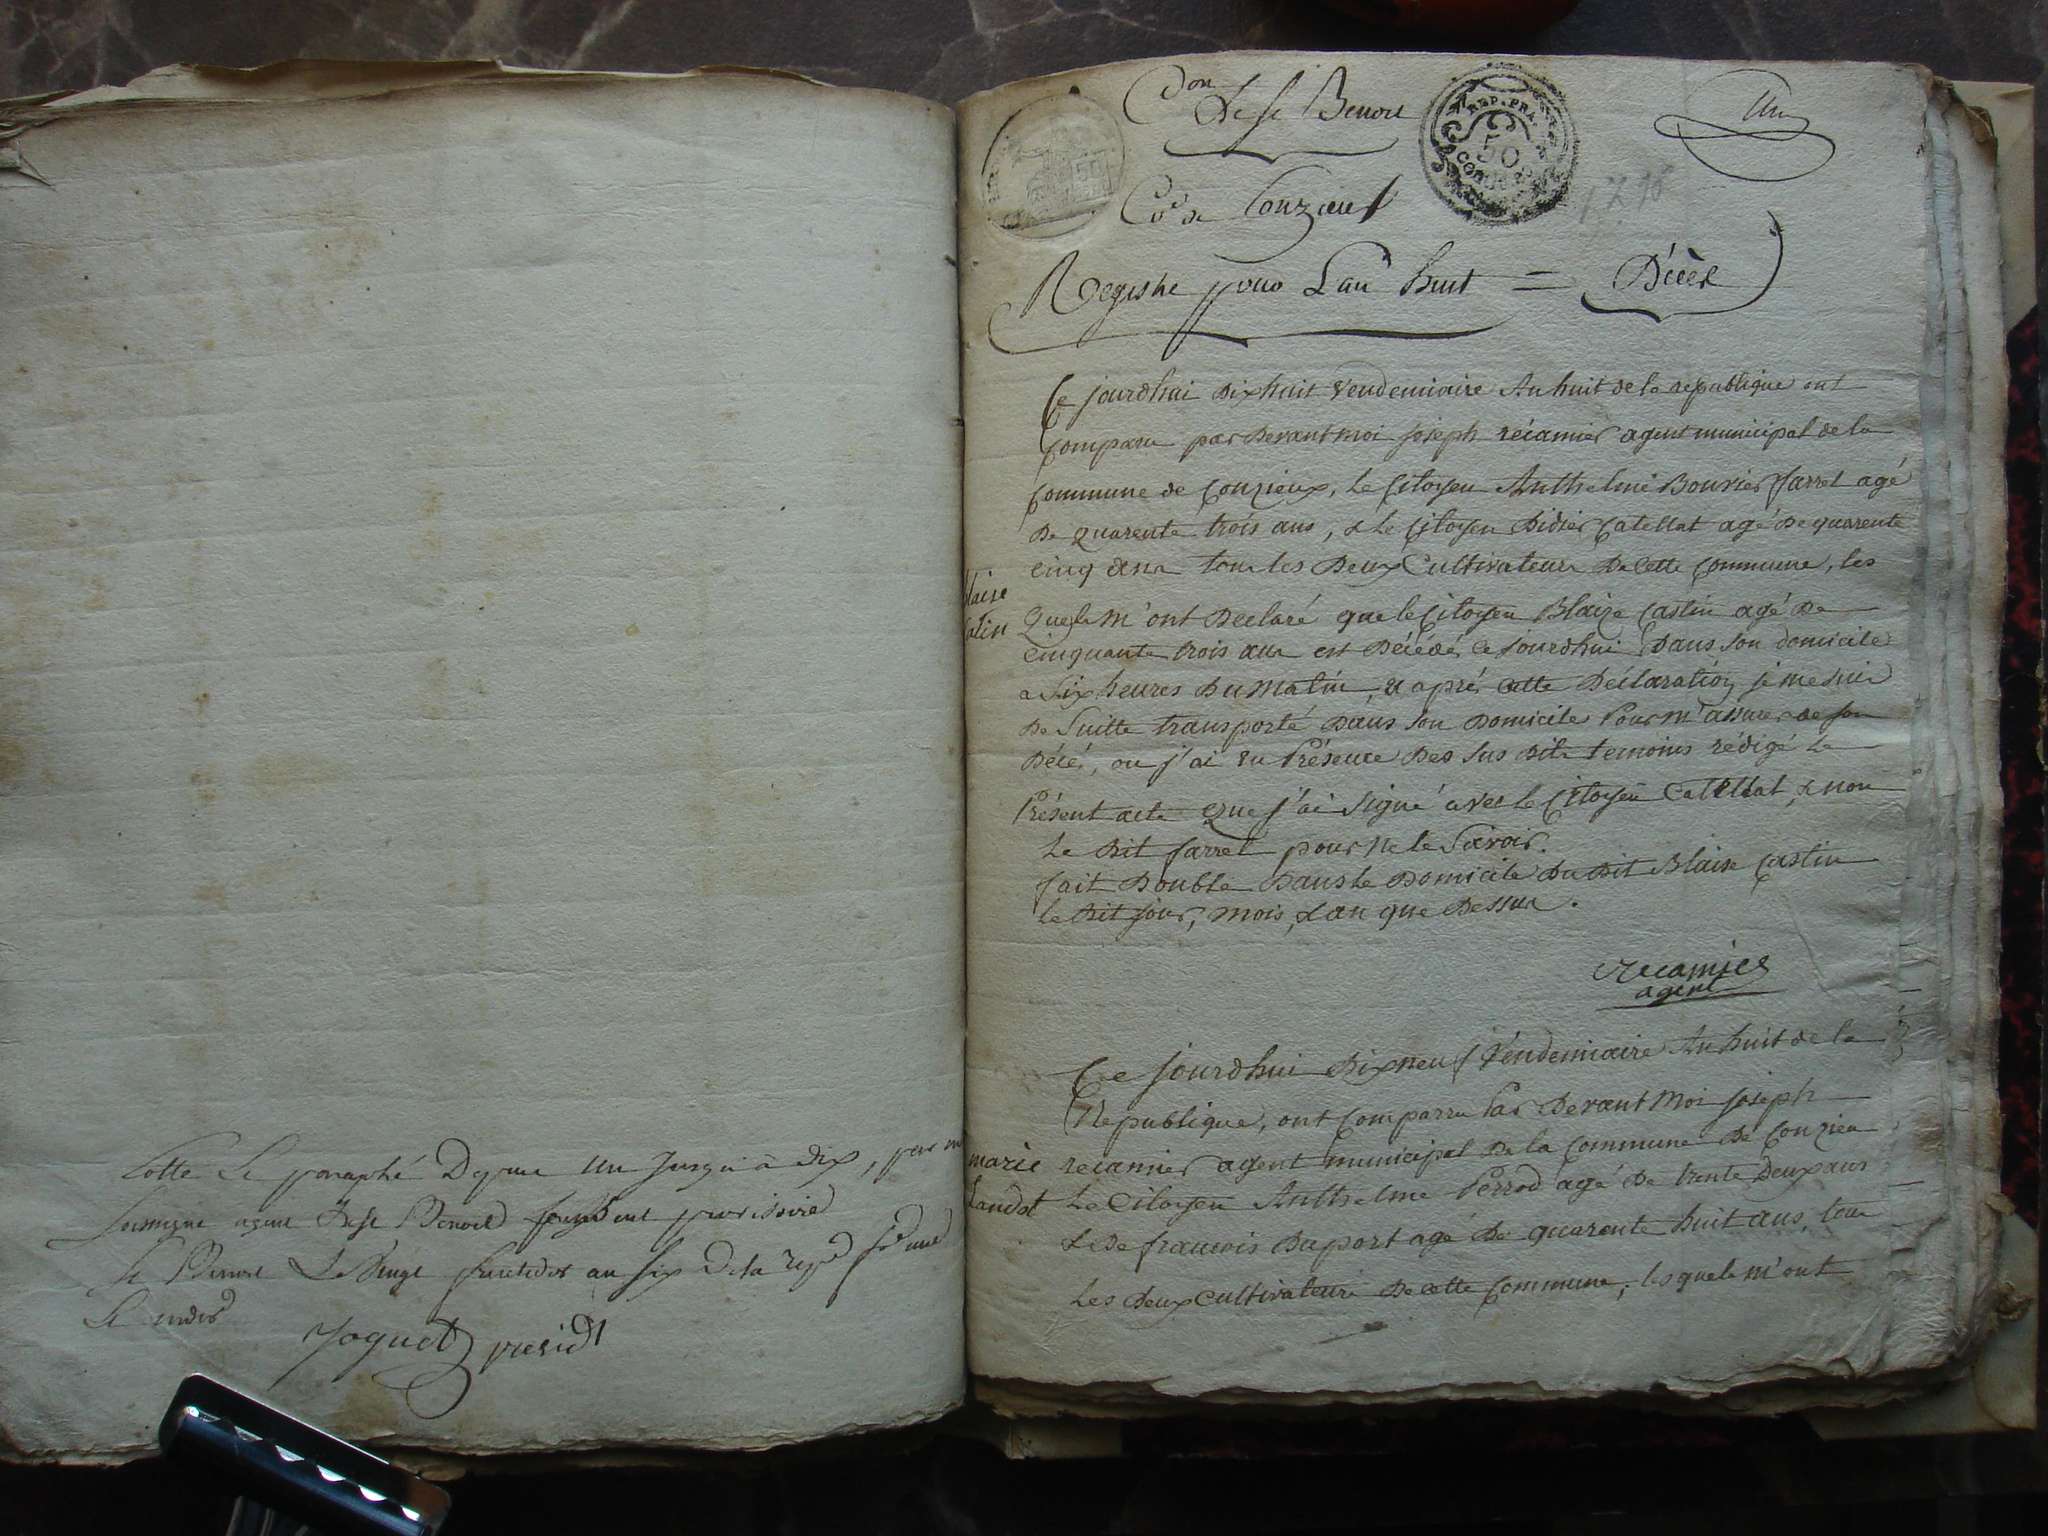 Cotté et paraphé Depuis un Jusqu'à dix, par moi
soussigné agent De st Benoit
St Benoit Le
Joquet présidt
Con
De st Benoit
Un
REP. FRA.
50
cent.
Cne de Conzieux
1798
Registre pour L'an huit = Décès
Ce jourdhui dix huit vendemiaire An huit de la republique ont
comparu par devant moi joseph récamier agent municipal de la
commune de Conzieux, le citoyen Anthelme Bouvier farret agé
de quarente trois ans, & le citoyen Didier Catellat agé de quarente
cinq ans tous les deux Cultivateurs de cette commune, les
blaise
Castin
quels m'ont declaré que le citoyen Blaize Castin agé de
cinquante trois ans est décédé ce jourdhui dans son domicile
a six heures du matin, & aprés cette déclaration je me suis
de suitte transporté dans son domicile pour m'assurer de son
décés, ou j'ai en présence des sus dits temoins rédigé le
présent acte que j'ai signé avec le citoyen Catellat, & non
le dit farret pour ne le savoir.
fait double dans le domicile du dit Blaise Castin
le dit jour, mois, & an que dessus.
récamier
agent
Ce jourdhui dix neuf vendemiaire An huit de la
Republique, ont comparru par devant moi joseph
marie
Landot
recamier agent municipal de la commune de Conzieu
le citoyen Anthelme Perrod agé de trente deux ans
& de francois duport agé de quarente huit ans, tous
les deux cultivateurs de cette commune, lesquels m'ont